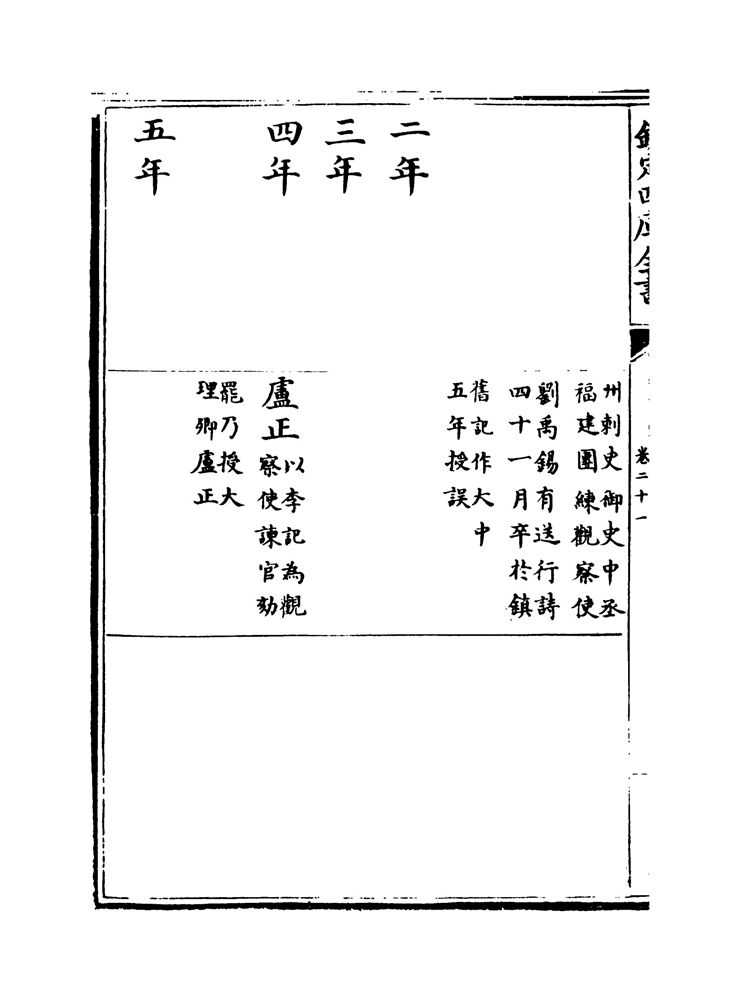 欽定四庫全書
卷二十一
州刺史御史中丞
福建團練觀察使
劉禹錫有送行詩
四十一月卒於鎮
舊記作大中
五年授誤
二年
三年
四年
盧正
以李記為觀
察使諫官劾
罷乃授大
理卿盧正
五年